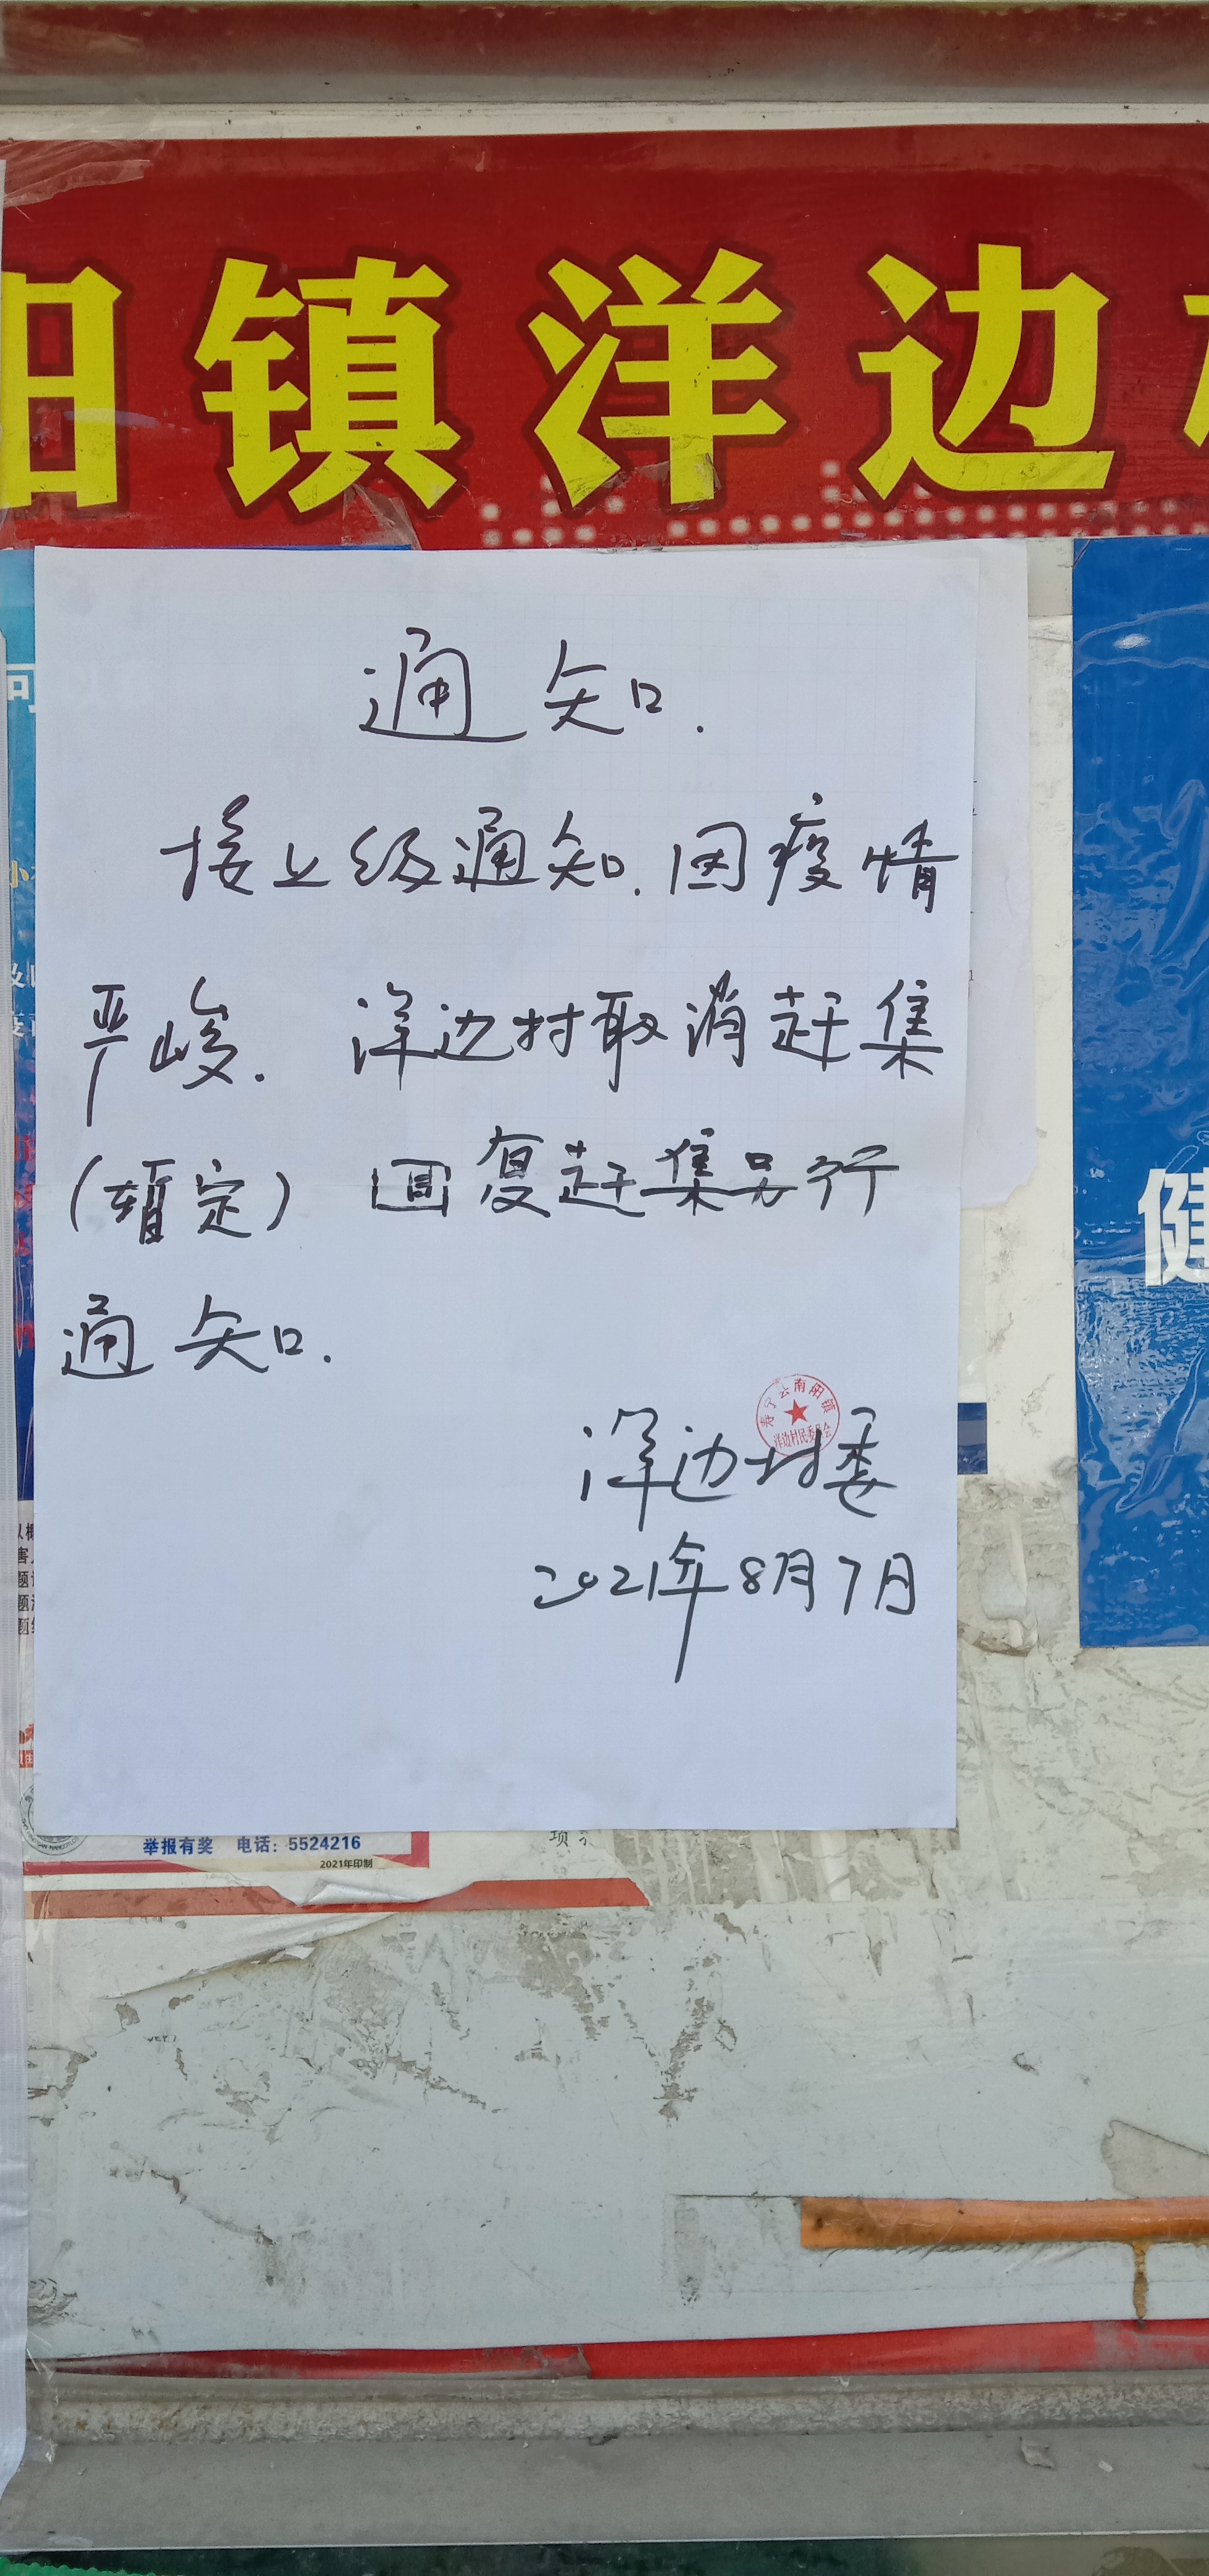 阳镇洋边
通知.
接上级通知.因疫情
严峻. 洋边村取消赶集
(暂定) 回复赶集另行
通知.
南阳镇
洋边村民委员会
洋边村委
2021年8月7日
健
举报有奖 电话：5524216
2021年印制